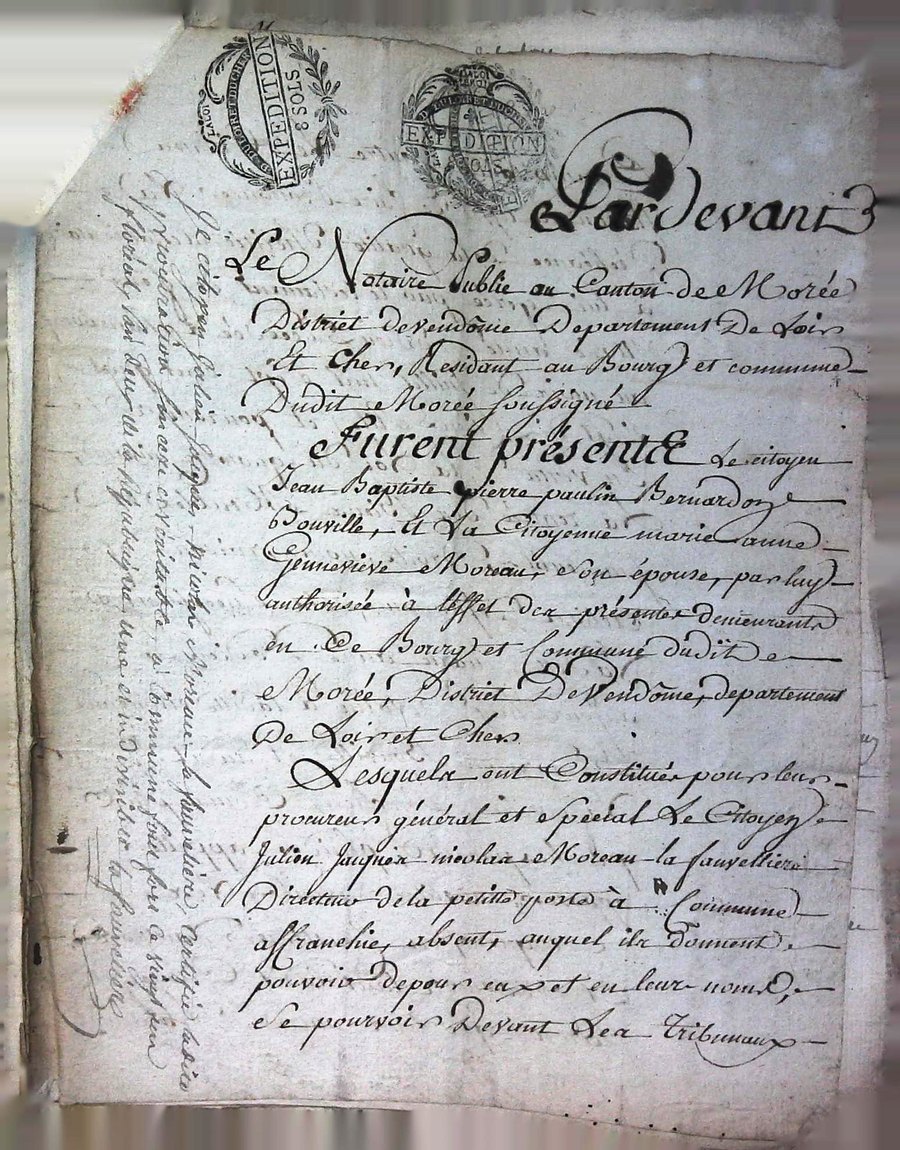 EXPEDITION
8 SOLS
EXPEDITION
SOLS
Pardevant
Le Notaire Public au Canton de Morée
District de vendôme Departement De Loir
Et Cher, Residant au Bourg et commune
Dudit Morée soussigné
Furent présents Le citoyen
Jean Baptiste pierre paulin Bernard
Bouville, Et La Citoyenne marie anne
Genneviéve Moreau, son épouse, par luy
authorisée à l'effet des présentes demeurants
en Ce Bourg et Commune dudit
Morée, District De Vendôme, departement
De Loir et Cher
Lesquels ont Constitués pour leur
procureur général et spécial Le Citoyen
Julien Jacques nicolas Moreau la fauvelliere
Directeur de la petitte poste à Commune
affranchie, absent, auquel ils donnent
pouvoir de pour eux et en leur noms,
Se pourvoir Devant Les Tribunaux
Je citoyen Julien Jacques nicolas Moreau la fauveliere, certifie la dite
procuration sincere et véritable à Commune
floréal, l'an deux de la république une et indivisible la fauveliere